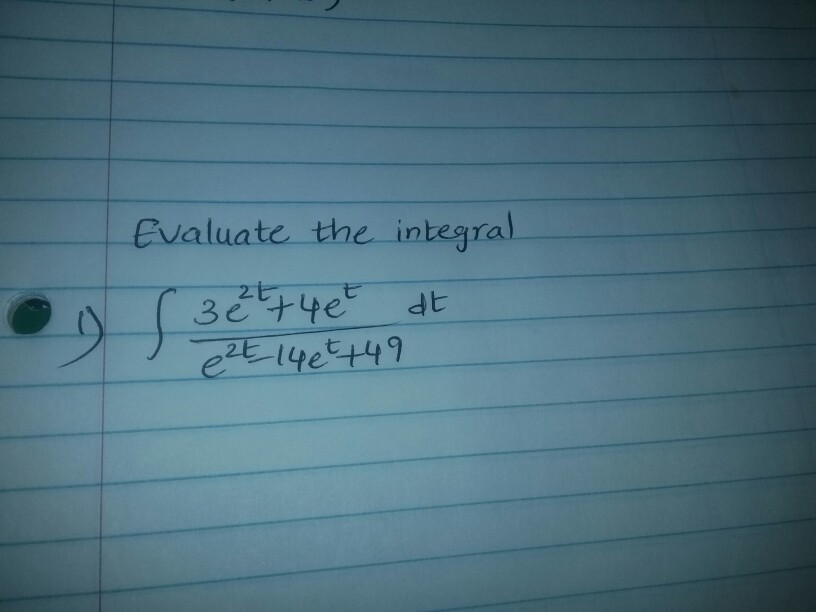 Evaluate the integral
1) ∫ (3e^{2t}+4e^t)/(e^{2t}-14e^t+49) dt